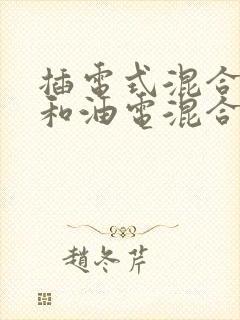 插電式混合
和油電混合
趙冬芹